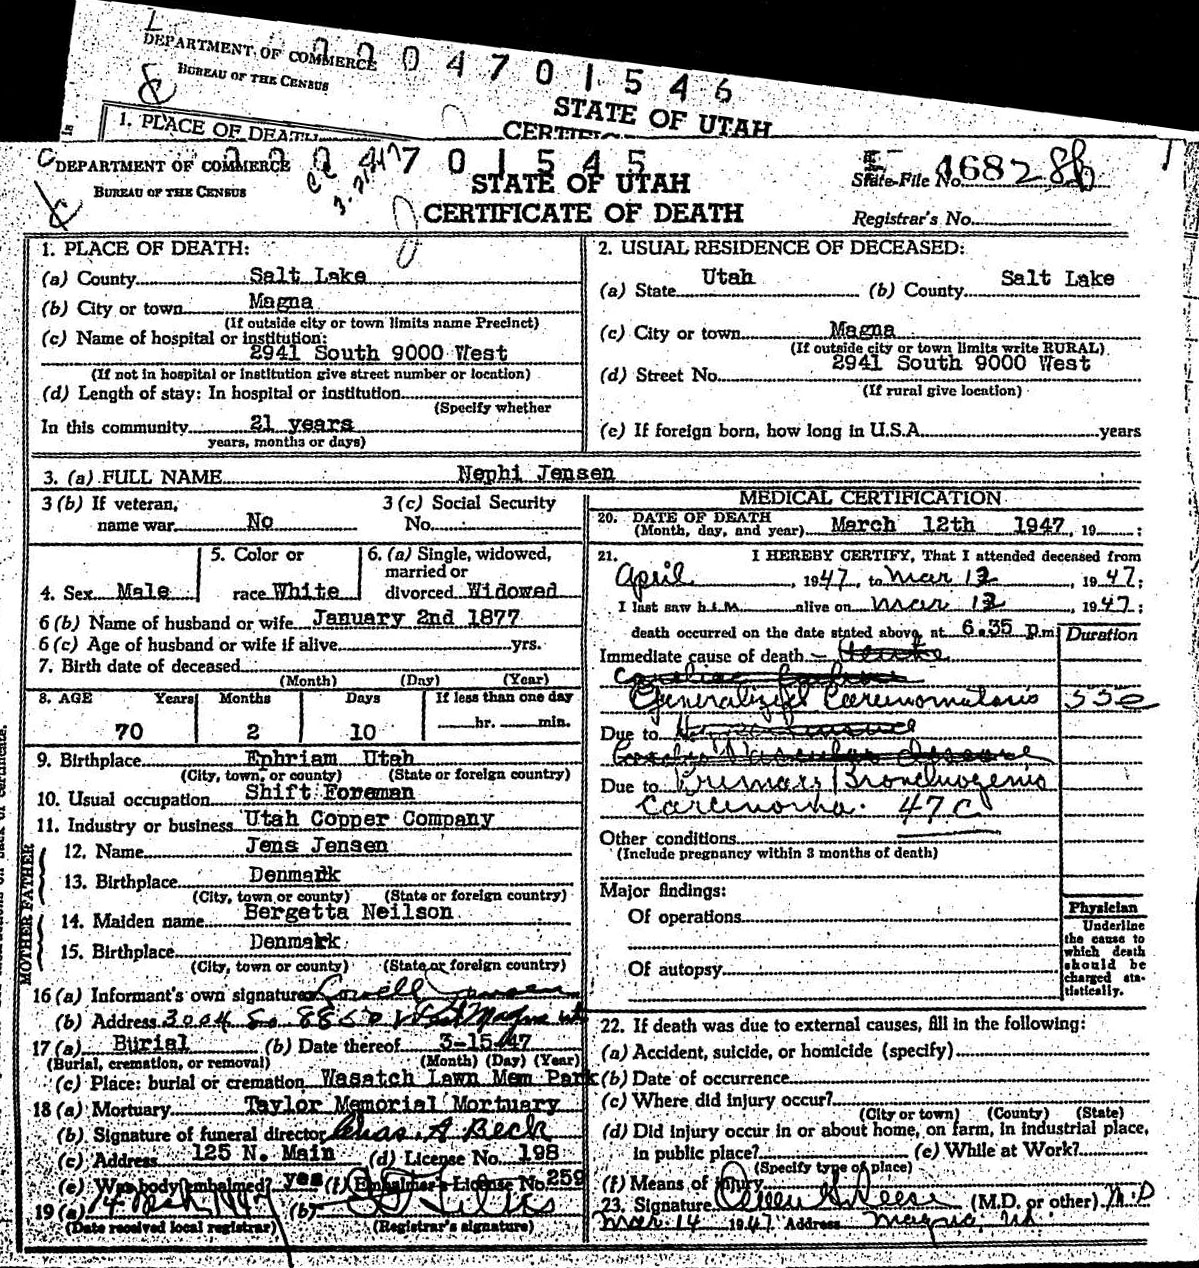 L
DEPARTMENT OF COMMERCE
BUREAU OF THE CENSUS
0 4 7 0 1 5 4 6
STATE OF UTAH
1. PLACE OF DEATH
DEPARTMENT OF COMMERCE
BUREAU OF THE CENSUS
4 7 0 1 5 4 5
STATE OF UTAH
CERTIFICATE OF DEATH
State File No.
Registrar's No.
1. PLACE OF DEATH:
(a) County Salt Lake
(b) City or town Magna
(If outside city or town limits name Precinct)
(c) Name of hospital or institution:
2941 South 9000 West
(If not in hospital or institution give street number or location)
(d) Length of stay: In hospital or institution
(Specify whether
In this community 21 years
years, months or days)
2. USUAL RESIDENCE OF DECEASED:
(a) State Utah (b) County Salt Lake
(c) City or town Magna
(If outside city or town limits write RURAL)
2941 South 9000 West
(d) Street No.
(If rural give location)
(e) If foreign born, how long in U.S.A. years
3. (a) FULL NAME Nephi Jensen
3 (b) If veteran,
name war No
3 (c) Social Security
No.
4. Sex Male
5. Color or
race White
6. (a) Single, widowed,
married or
divorced Widowed
6 (b) Name of husband or wife January 2nd 1877
6 (c) Age of husband or wife if alive yrs.
7. Birth date of deceased
(Month) (Day) (Year)
8. AGE Years Months Days If less than one day
70 2 10 hr. min.
9. Birthplace Ephriam Utah
(City, town, or county) (State or foreign country)
10. Usual occupation Shift Foreman
11. Industry or business Utah Copper Company
FATHER
12. Name Jens Jensen
13. Birthplace Denmark
(City, town or county) (State or foreign country)
MOTHER
14. Maiden name Bergetta Neilson
15. Birthplace Denmark
(City, town or county) (State or foreign country)
16 (a) Informant's own signature Lowell Jensen
(b) Address 3004 So 8850 West Magna
17 (a) Burial (b) Date thereof 3-15-47
(Burial, cremation, or removal) (Month) (Day) (Year)
(c) Place: burial or cremation Wasatch Lawn Mem Park
18 (a) Mortuary Taylor Memorial Mortuary
(b) Signature of funeral director Chas. A Beck
(c) Address 125 N. Main (d) License No. 198
(e) Was body embalmed? yes (f) Embalmer's License No. 259
19 (a) 14 1947 (b)
(Date received local registrar) (Registrar's signature)
MEDICAL CERTIFICATION
20. DATE OF DEATH
(Month, day, and year) March 12th 1947, 19 ;
21. I HEREBY CERTIFY, That I attended deceased from
April, 1947, to Mar 12, 1947;
I last saw him alive on Mar 12, 1947;
death occurred on the date stated above, at 6.35 pm
Duration
Immediate cause of death
Generalized Carcinomatosis
Due to
Due to Primary Bronchiogenic
Carcinoma. 47 C
Other conditions
(Include pregnancy within 3 months of death)
Major findings:
Of operations
Of autopsy
Physician
Underline
the cause to
which death
should be
charged sta-
tistically.
22. If death was due to external causes, fill in the following:
(a) Accident, suicide, or homicide (specify)
(b) Date of occurrence
(c) Where did injury occur?
(City or town) (County) (State)
(d) Did injury occur in or about home, on farm, in industrial place,
in public place? (e) While at Work?
(Specify type of place)
(f) Means of injury
23. Signature (M.D. or other) M.D
Mar 14 1947 Address Magna, Ut.